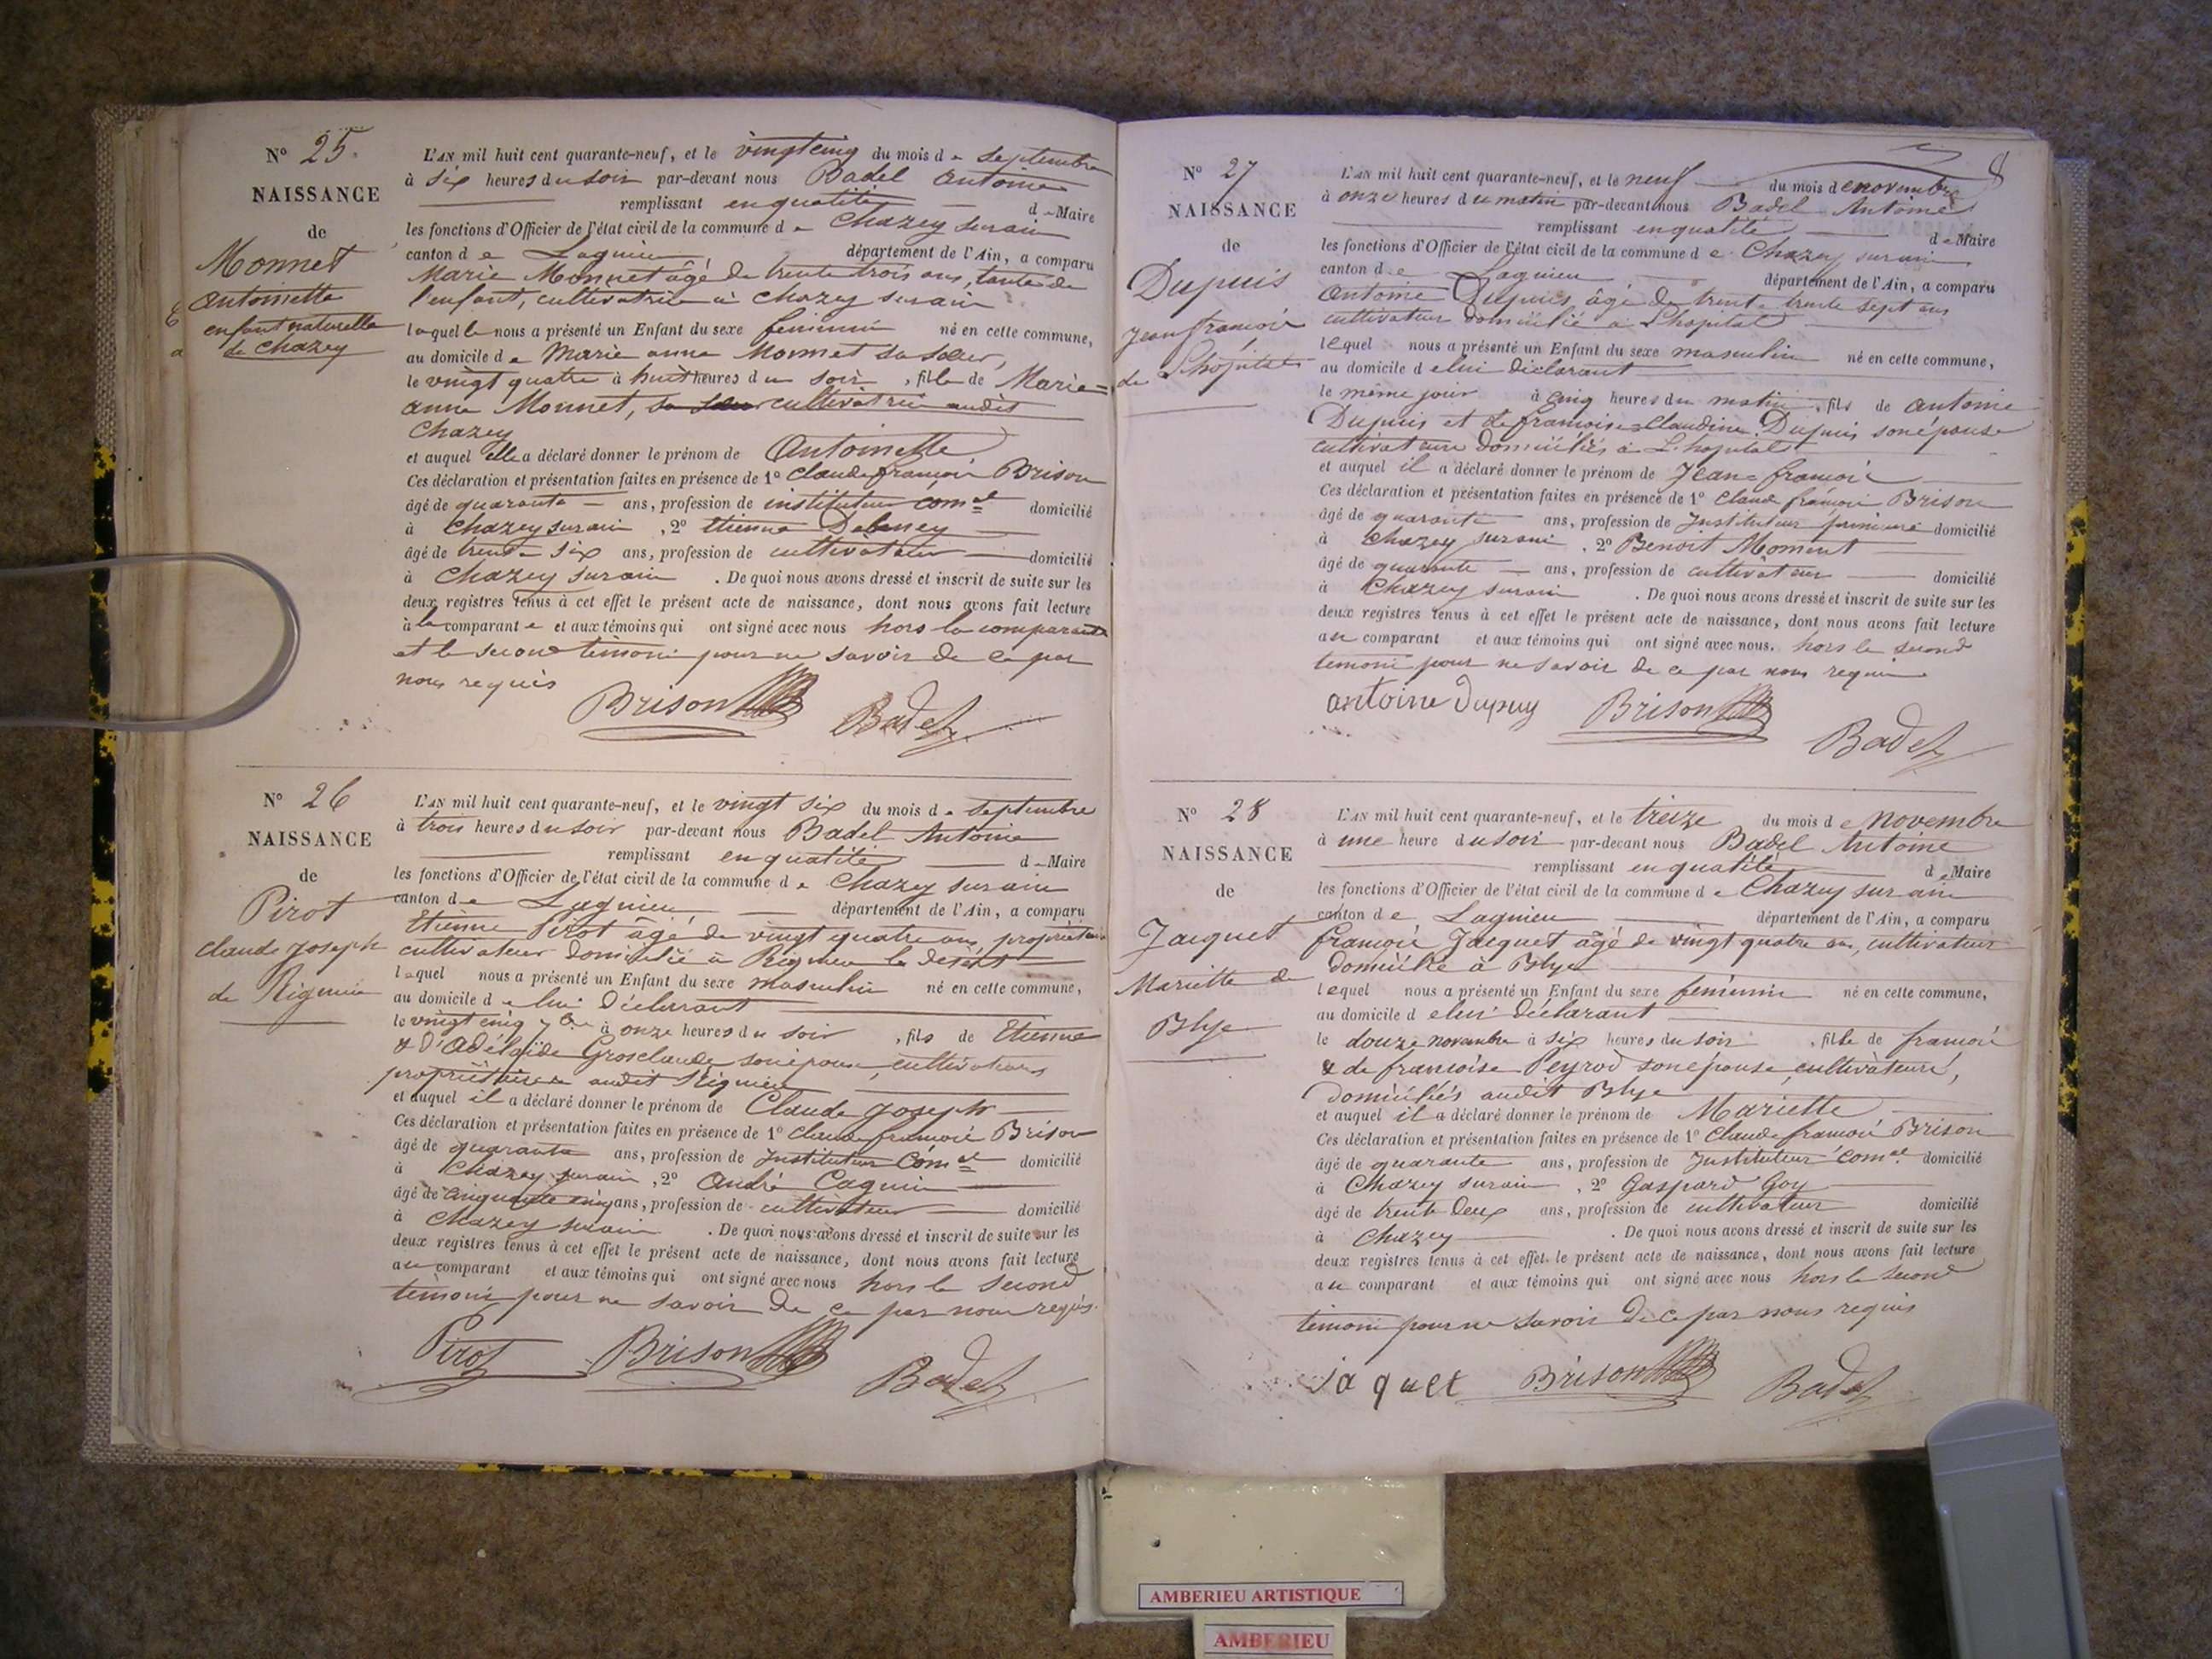 N° 25.
NAISSANCE
de
Monnet
antoinette
enfant naturelle
de Chazey
L'AN mil huit cent quarante-neuf, et le vingtcinq du mois de septembre
à six heures du soir par-devant nous Badel antoine
remplissant en qualité de Maire
les fonctions d'Officier de l'état civil de la commune de Chazey sur ain
canton de Lagnieu, département de l'Ain, a comparu
Marie Monnet âgé de trente trois ans, tante de
l'enfant, cultivatrice à chazey sur ain
laquelle nous a présenté un Enfant du sexe feminin né en cette commune,
au domicile de Marie anne Monnet sa soeur,
le vingt quatre à huit heures du soir, fille de Marie=
anne Monnet, sa soeur cultivatrice audit
Chazey
et auquel elle a déclaré donner le prénom de Antoinette
Ces déclaration et présentation faites en présence de 1° Claude françois Brison
âgé de quarante ans, profession de instituteur comal domicilié
à Chazey sur ain, 2° étienne
âgé de trente six ans, profession de cultivateur domicilié
à Chazey sur ain. De quoi nous avons dressé et inscrit de suite sur les
deux registres tenus à cet effet le présent acte de naissance, dont nous avons fait lecture
à la comparante et aux témoins qui ont signé avec nous hors la comparante
et le second témoin pour ne savoir de ce par
nous requis
Brison Badel
N° 26
NAISSANCE
de
Pirot
Claude Joseph
de Rignieu
L'AN mil huit cent quarante-neuf, et le vingt six du mois de septembre
à trois heures du soir par-devant nous Badel Antoine
remplissant en qualité de Maire
les fonctions d'Officier de l'état civil de la commune de Chazey sur ain
canton de Lagnieu département de l'Ain, a comparu
Etienne Pirot âgé de vingt quatre ans, propriétaire
cultivateur domicilié à Rignieu le desert
lequel nous a présenté un Enfant du sexe masculin né en cette commune,
au domicile de lui déclarant
le vingt cinq 7bre à onze heures du soir, fils de Etienne
& d'Adélaïde Grosclaude son épouse, cultivateurs
propriétaires audit Rignieu
et auquel il a déclaré donner le prénom de Claude Joseph
Ces déclaration et présentation faites en présence de 1° Claude françois Brison
âgé de quarante ans, profession de Instituteur Comal domicilié
à Chazey sur ain, 2° André Cagnin
âgé de cinquante cinq ans, profession de cultivateur domicilié
à Chazey sur ain. De quoi nous avons dressé et inscrit de suite sur les
deux registres tenus à cet effet le présent acte de naissance, dont nous avons fait lecture
au comparant et aux témoins qui ont signé avec nous hors le second
témoin pour ne savoir de ce par nous requis.
Pirot Brison Badel
8
N° 27
NAISSANCE
de
Dupuis
Jean françois
de Lhopital
L'AN mil huit cent quarante-neuf, et le neuf du mois de novembre
à onze heures du matin par-devant nous Badel Antoine
remplissant en qualité de Maire
les fonctions d'Officier de l'état civil de la commune de Chazey sur ain
canton de Lagnieu département de l'Ain, a comparu
Antoine Dupuis, âgé de trente trente sept ans
cultivateur domicilié à Lhopital
lequel nous a présenté un Enfant du sexe masculin né en cette commune,
au domicile de lui déclarant
le même jour à cinq heures du matin, fils de antoine
Dupuis et de françoise Claudine Dupuis son épouse
cultivateurs domiciliés à L'hopital
et auquel il a déclaré donner le prénom de Jean=françois
Ces déclaration et présentation faites en présence de 1° Claude françois Brison
âgé de quarante ans, profession de Instituteur primaire domicilié
à Chazey sur ain, 2° Benoit Moment
âgé de quarante ans, profession de cultivateur domicilié
à Chazey sur ain. De quoi nous avons dressé et inscrit de suite sur les
deux registres tenus à cet effet le présent acte de naissance, dont nous avons fait lecture
au comparant et aux témoins qui ont signé avec nous. hors le second
temoin pour ne savoir de ce par nous requis
antoine Dupuy Brison Badel
N° 28
NAISSANCE
de
Jacquet
Mariette de
Blye
L'AN mil huit cent quarante-neuf, et le treize du mois de Novembre
à une heure du soir par-devant nous Badel Antoine
remplissant en qualité de Maire
les fonctions d'Officier de l'état civil de la commune de Chazey sur ain
canton de Lagnieu département de l'Ain, a comparu
françois Jacquet âgé de vingt quatre ans, cultivateur
domicilié à Blye
lequel nous a présenté un Enfant du sexe féminin né en cette commune,
au domicile de lui déclarant
le douze novembre à six heures du soir, fille de françois
& de françoise Peyrod son épouse, cultivateurs,
domiciliés audit Blye
et auquel il a déclaré donner le prénom de Mariette
Ces déclaration et présentation faites en présence de 1° Claude françois Brison
âgé de quarante ans, profession de Instituteur comal. domicilié
à Chazey sur ain, 2° Gaspard Goy
âgé de trente deux ans, profession de cultivateur domicilié
à Chazey. De quoi nous avons dressé et inscrit de suite sur les
deux registres tenus à cet effet. le présent acte de naissance, dont nous avons fait lecture
au comparant et aux témoins qui ont signé avec nous hors le second
témoin pour ne savoir de ce par nous requis
jaquet Brison Badel
AMBERIEU ARTISTIQUE
AMBERIEU